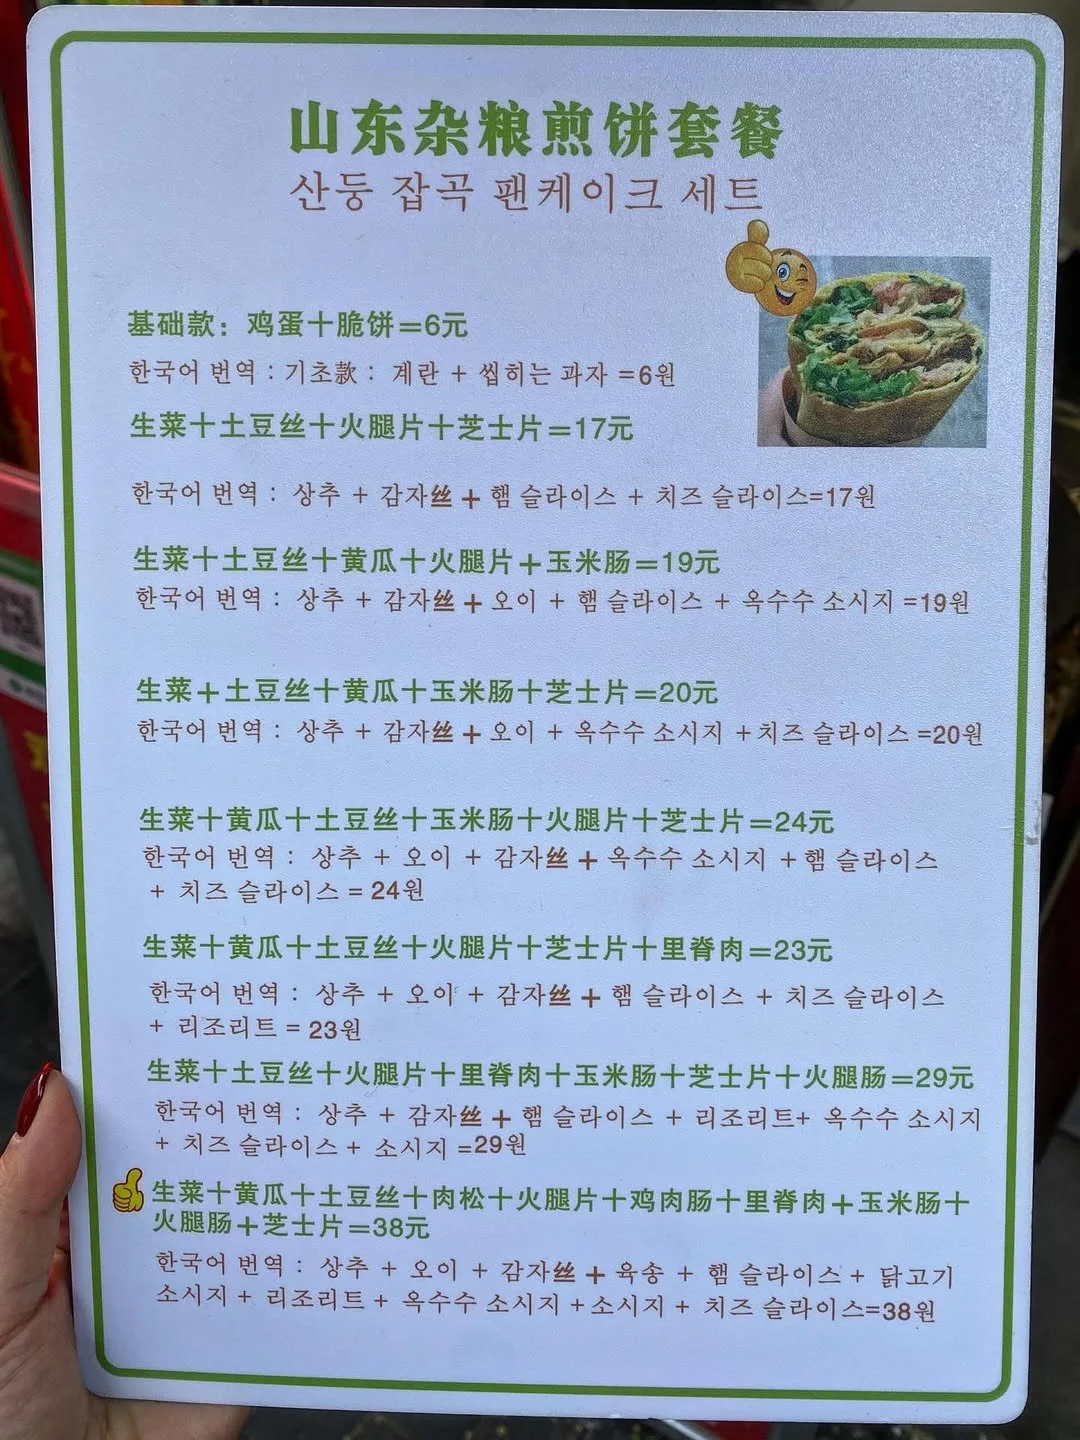 山东杂粮煎饼套餐
산둥 잡곡 팬케이크 세트
基础款：鸡蛋+脆饼=6元
한국어 번역 : 기초款 : 계란 + 씹히는 과자 =6원
生菜+土豆丝+火腿片+芝士片=17元
한국어 번역 : 상추 + 감자丝 + 햄 슬라이스 + 치즈 슬라이스=17원
生菜+土豆丝+黄瓜+火腿片+玉米肠=19元
한국어 번역 : 상추 + 감자丝 + 오이 + 햄 슬라이스 + 옥수수 소시지 =19원
生菜+土豆丝+黄瓜+玉米肠+芝士片=20元
한국어 번역 : 상추 + 감자丝 + 오이 + 옥수수 소시지 +치즈 슬라이스 =20원
生菜+黄瓜+土豆丝+玉米肠+火腿片+芝士片=24元
한국어 번역 : 상추 + 오이 + 감자丝 + 옥수수 소시지 +햄 슬라이스
+ 치즈 슬라이스 = 24원
生菜+黄瓜+土豆丝+火腿片+芝士片+里脊肉=23元
한국어 번역 : 상추 + 오이 + 감자丝 + 햄 슬라이스 + 치즈 슬라이스
+ 리조리트 = 23원
生菜+土豆丝+火腿片+里脊肉+玉米肠+芝士片+火腿肠=29元
한국어 번역 : 상추 + 감자丝 + 햄 슬라이스 + 리조리트+ 옥수수 소시지
+ 치즈 슬라이스 + 소시지 =29원
生菜+黄瓜+土豆丝+肉松+火腿片+鸡肉肠+里脊肉+玉米肠+
火腿肠+芝士片=38元
한국어 번역 : 상추 + 오이 + 감자丝 + 육송 + 햄 슬라이스 + 닭고기
소시지 + 리조리트 + 옥수수 소시지 +소시지 + 치즈 슬라이스=38원